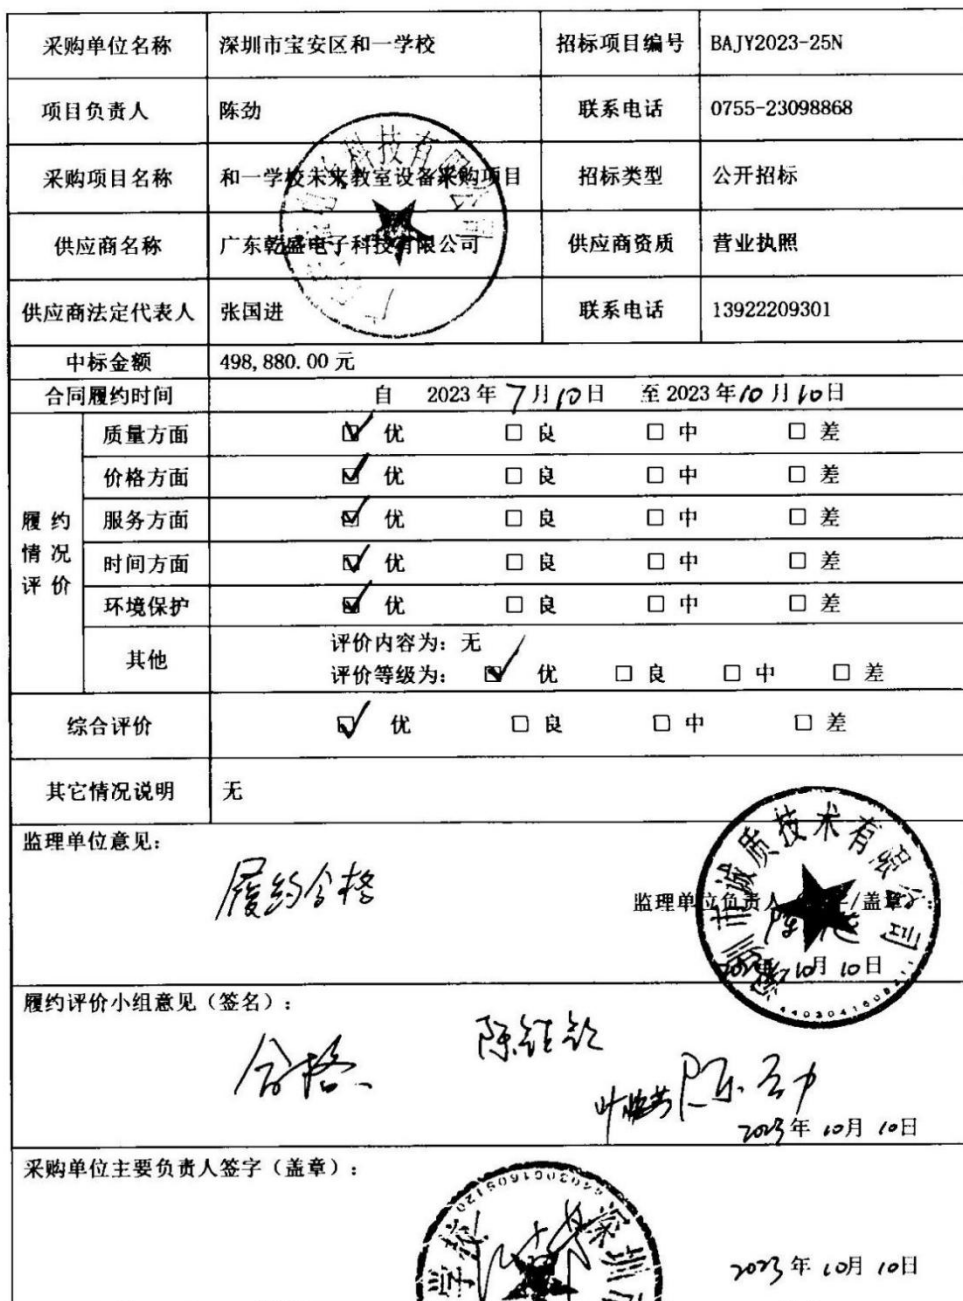 采购单位名称 深圳市宝安区和一学校 招标项目编号 BAJY2023-25N
项目负责人 陈劲 联系电话 0755-23098868
采购项目名称 和一学校未来教室设备采购项目 招标类型 公开招标
供应商名称 广东乾盛电子科技有限公司 供应商资质 营业执照
供应商法定代表人 张国进 联系电话 13922209301
中标金额 498,880.00 元
合同履约时间 自 2023 年 7 月 10 日 至 2023 年 10 月 10 日
履约情况评价
质量方面 ☑ 优 □ 良 □ 中 □ 差
价格方面 ☑ 优 □ 良 □ 中 □ 差
服务方面 ☑ 优 □ 良 □ 中 □ 差
时间方面 ☑ 优 □ 良 □ 中 □ 差
环境保护 ☑ 优 □ 良 □ 中 □ 差
其他 评价内容为：无
评价等级为： ☑ 优 □ 良 □ 中 □ 差
综合评价 ☑ 优 □ 良 □ 中 □ 差
其它情况说明 无
监理单位意见：
履约合格
监理单位负责人（签字/盖章）：
深圳市诚质技术有限公司
10月 10日
履约评价小组意见（签名）：
合格
陈劲
2023年 10月 10日
采购单位主要负责人签字（盖章）：
2023年 10月 10日